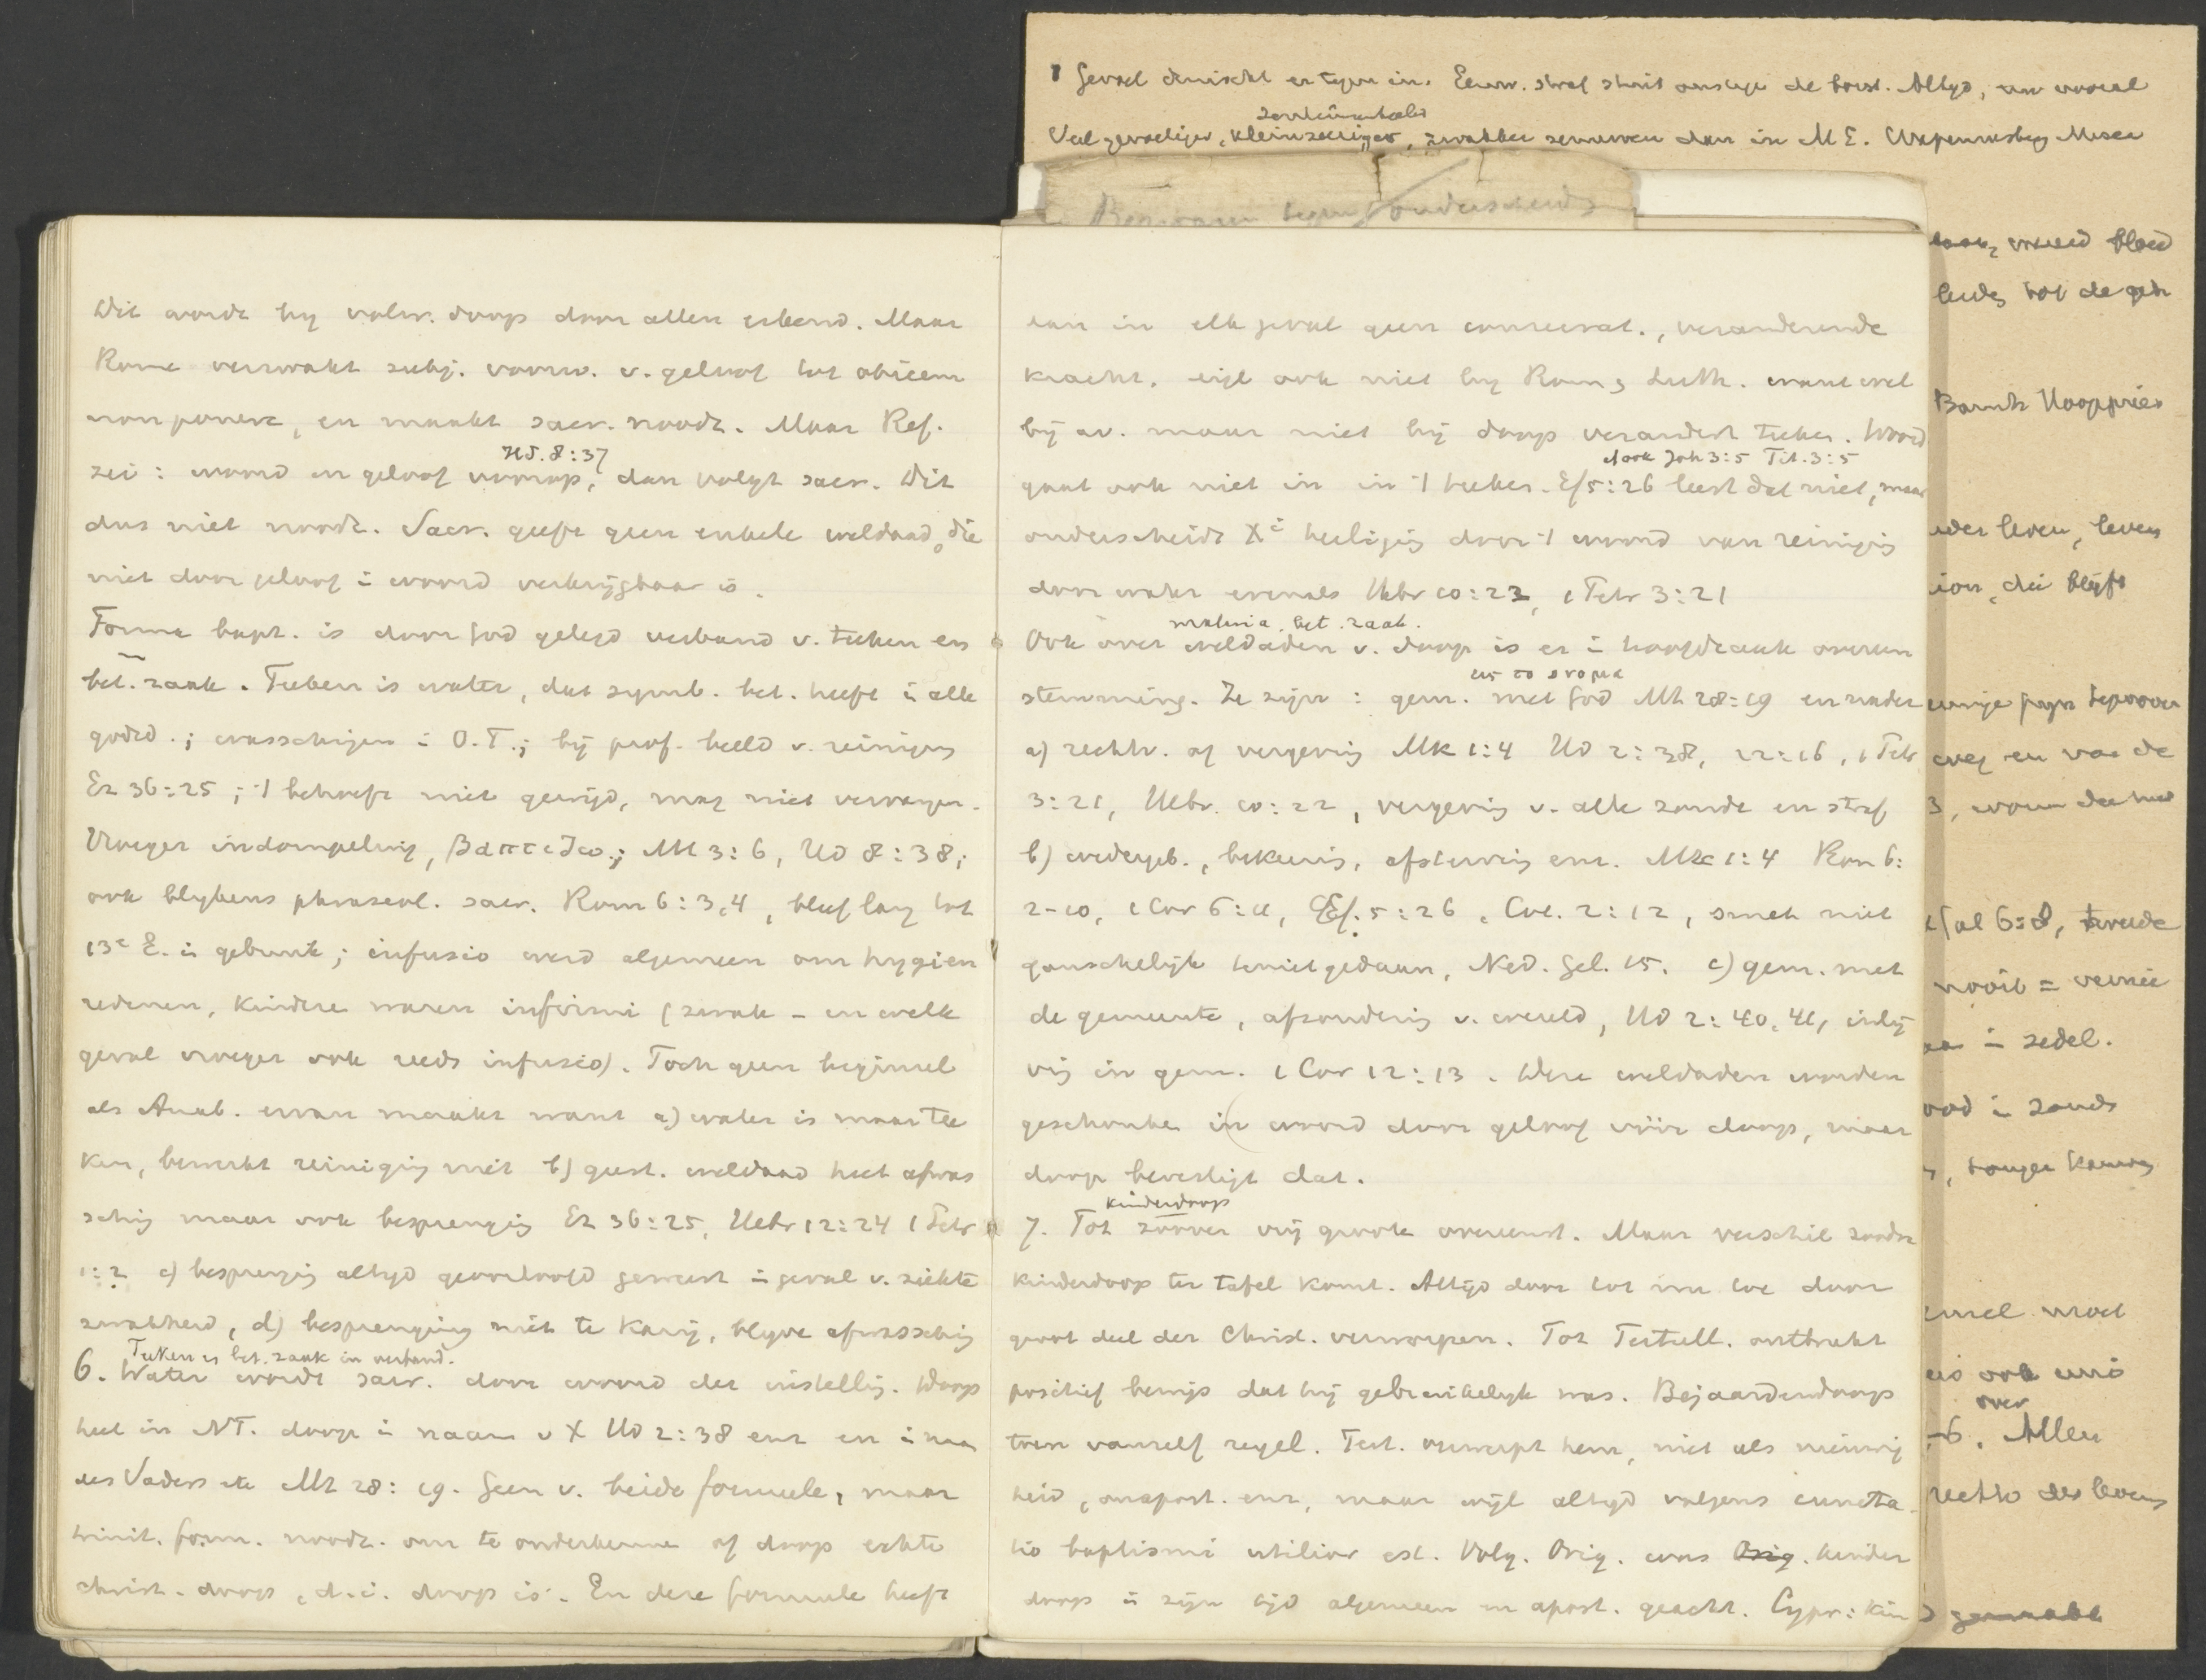 Dit wordt by volw. doop door allen erkend. Maar
Rome verzwakt subj. voorw. v. geloof tot obicem
non ponere, en maakt sacr. noodz. Maar Ref.
Hd. 8:37
zei: woord en geloof voorop, dan volgt sacr. Dit
dus niet noodz. Sacr. geeft geen enkele weldaad, die
niet door geloof i woord verkrijgbaar is.
Forma bapt. is door God gelegd verband v. teeken en
bet. zaak. Teeken is water, dat symb. bet. heeft i alle
godsd.; wasschingen i O.T.; bij prof. beeld v. reiniging
Ez 36:25; 't behoeft niet gewijd, mag niet vervangen.
Vroeger indompeling, Mt 3:6, Hd 8:38;
ook blykens phraseol. sacr. Rom 6:3,4, bleef lang tot
13e E. i gebruik; infusio werd algemeen om hygien
redenen, kindere waren infirmi (zwak – in welk
geval vroeger ook reeds infusio). Toch geen beginsel
als Anab. ervan maakt want a) water is maar tee
ken, bewerkt reiniging niet b) geest. weldaad heet afwas
sching maar ook besprenging Ez 36:25, Hebr 12:24 1 Petr
1:2 c) besprenging altyd geoorloofd geweest i geval v. ziekte
zwakheid, d) besprenging niet te karig, blyve afwassching
Teeken en bet. zaak in verband.
6. Water wordt sacr. door woord der instelling. Doop
heet in NT. doop i naam v X Hd 2:38 enz en i naa
des Vaders etc Mt 28:19. Geen v. beide formule, maar
trinit. form. noodz. om te onderkenne of doop echte
christ. doop, d.i. doop is. En deze formule heeft
dan in elk geval geen consecrat., veranderende
kracht, eigl ook niet by Rom, Luth. want wel
bij av. maar niet bij doop verandert teeken. Woord
ook Joh 3:5 Tit. 3:5
gaat ook niet in in 't teeken. Ef 5:26 leert dat niet, maar
onderscheidt heiliging door 't woord van reiniging
door water evenals Hebr 10:22, 1 Petr 3:21
materia, bet. zaak.
Ook over weldaden v. doop is er i hoofdzaak overeen
stemming. Ze zijn: gem. met God Mt 28:19 en nader
a) rechtv. of vergeving Mk 1:4 Hd 2:38, 22:16, 1 Petr
3:21, Hebr. 10:22, vergeving v. alle zonde en straf
b) wedergeb., bekeering, afsterving enz. Mk 1:4 Rom 6:
2-10, 1 Cor 6:11, Ef. 5:26, Col. 2:12, smet niet
ganschelijk tenietgedaan, Ned. Gel. 15. c) gem. met
de gemeente, afzondering v. wereld, Hd 2:40,41, inlij
ving in gem. 1 Cor 12:13. Deze weldaden worden
geschonken in woord door geloof vóór doop, maar
doop bevestigt dat.
kinderdoop
7. Tot zoover vrij groote overeenst. Maar verschil zoodra
kinderdoop ter tafel komt. Altijd door tot nu toe door
groot deel der Christ. verworpen. Tot Tertull. ontbreekt
positief bewijs dat hij gebruikelijk was. Bejaardendoop
toen vanzelf regel. Tert. verwerpt hem, niet als nieuwig
heid, onapost. enz, maar wijl altyd volgens cuncta
tio baptismi utilior est. Volg. Orig. was Orig. kinder
doop i zijn tijd algemeen en apost. geacht. Cypr: kin
Gevoel druischt er tegen in. Eeuw. straf stuit onszelf de borst. Altyd, nu vooral
sentimenteeler
Veel gevoeliger, kleinzeeriger, zwakker zenuwen dan in M E.
vreemd bloed
leidg tot de
der leven, leven
ion, die blyft
weg en van de
Gal 6:8, tweede
nooit =
i zedel.
ood i zonds
ook
over
-6. Allen
rechts des levens